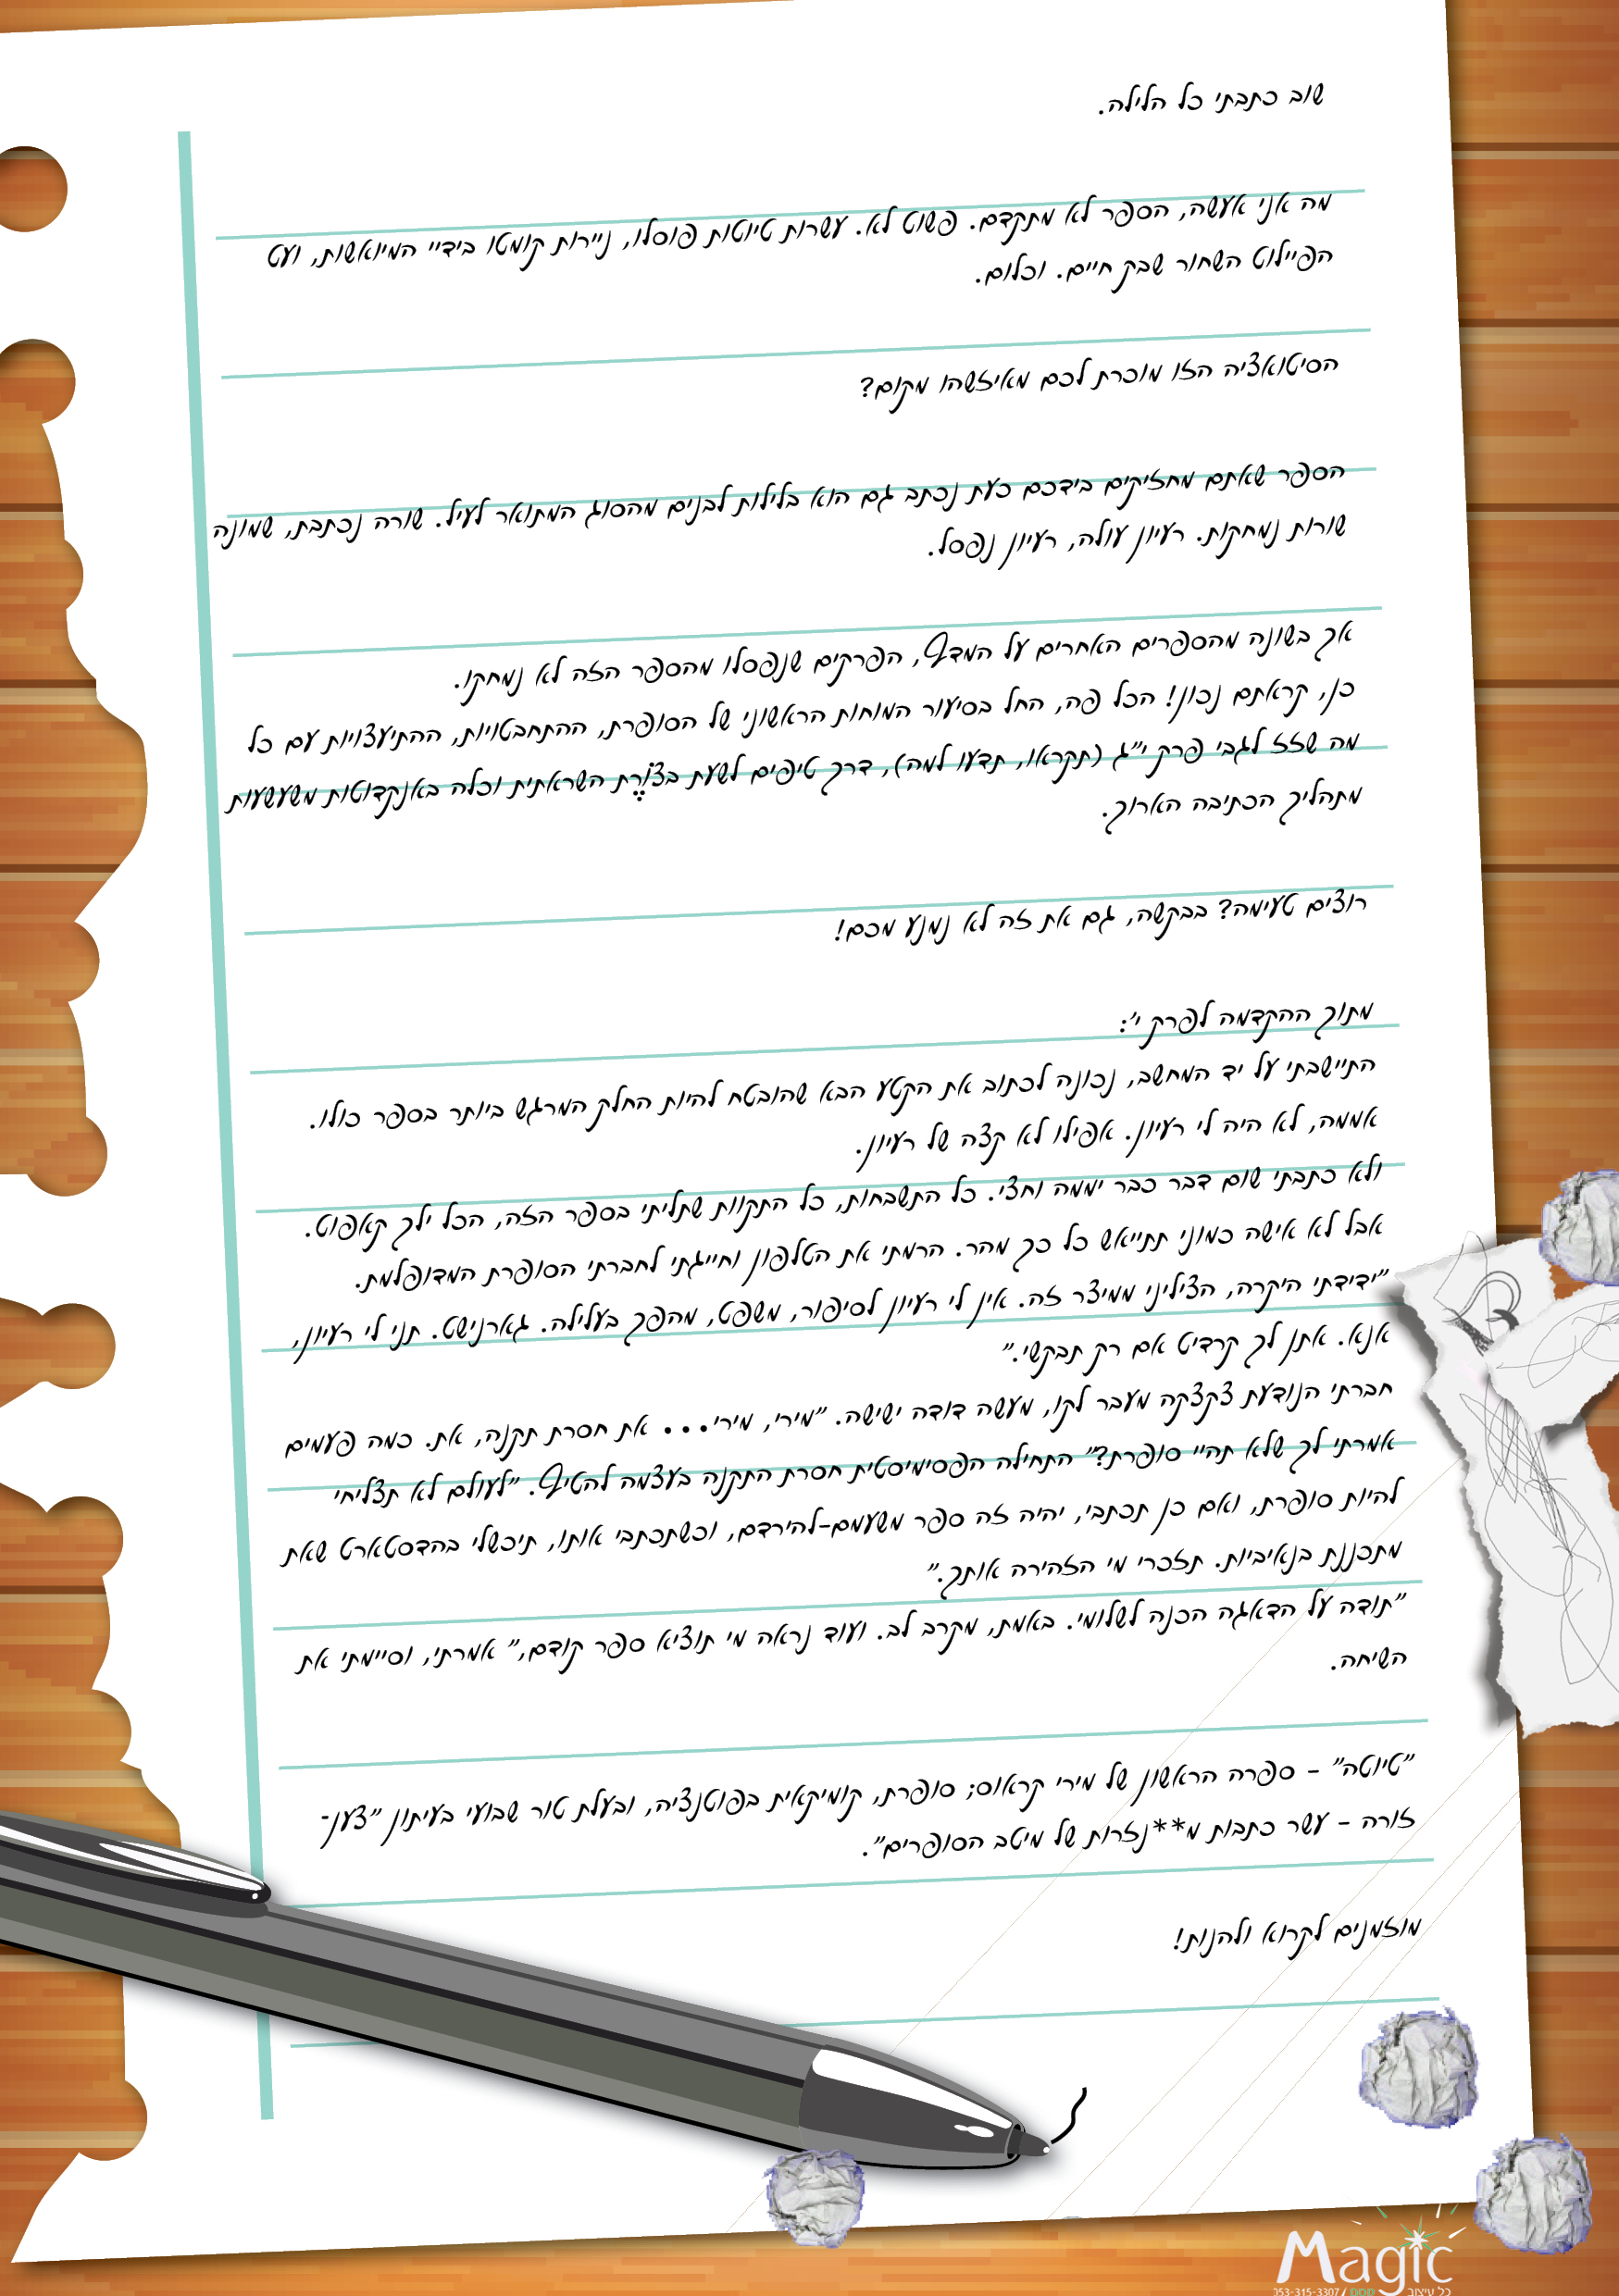 שוב כתבתי כל הלילה.
מה אני אעשה, הספר לא מתקדם. פשוט לא. עשרות טיוטות פוסלו, ניירות קומטו בידיי המיואשות, ועט
הפיילוט השחור שבק חיים. וכלום.
הסיטואציה הזו מוכרת לכם מאיזשהו מקום?
הספר שאתם מחזיקים בידכם כעת נכתב גם הוא בלילות לבנים מהסוג המתואר לעיל. שורה נכתבת, שמונה
שורות נמחקות. רעיון עולה, רעיון נפסל.
אך בשונה מהספרים האחרים על המדף, הפרקים שנפסלו מהספר הזה לא נמחקו.
כן, קראתם נכון! הכל פה, החל בסיעור המוחות הראשוני של הסופרת, ההתחבטויות, ההתיעצויות עם כל
מה שזז לגבי פרק י"ג (תקראו, תדעו למה), דרך טיפים לשעת בצוֹרֶת השראתית וכלה באנקדוטות משעשעות
מתהליך הכתיבה הארוך.
רוצים טעימה? בבקשה, גם את זה לא נמנע מכם!
מתוך ההקדמה לפרק י':
התיישבתי על יד המחשב, נכונה לכתוב את הקטע הבא שהובטח להיות החלק המרגש ביותר בספר כולו.
אממה, לא היה לי רעיון. אפילו לא קצה של רעיון.
ולא כתבתי שום דבר כבר יממה וחצי. כל התשבחות, כל התקוות שתליתי בספר הזה, הכל ילך קאפוט.
אבל לא אישה כמוני תתייאש כל כך מהר. הרמתי את הטלפון וחייגתי לחברתי הסופרת המדופלמת.
"ידידתי היקרה, הציליני ממיצר זה. אין לי רעיון לסיפור, משפט, מהפך בעלילה. גארנישט. תני לי רעיון,
אנא. אתן לך קרדיט אם רק תבקשי."
חברתי הנודעת צקצקה מעבר לקו, מעשה דודה ישישה. "מירי, מירי... את חסרת תקנה, את. כמה פעמים
אמרתי לך שלא תהיי סופרת?" התחילה הפסימיסטית חסרת התקנה בעצמה להטיף. "לעולם לא תצליחי
להיות סופרת, ואם כן תכתבי, יהיה זה ספר משעמם-להירדם, וכשתכתבי אותו, תיכשלי בהדסטארט שאת
מתכננת בנאיביות. תזכרי מי הזהירה אותך."
"תודה על הדאגה הכנה לשלומי. באמת, מקרב לב. ועוד נראה מי תוציא ספר קודם," אמרתי, וסיימתי את
השיחה.
"טיוטה" - ספרה הראשון של מירי קראוס; סופרת, קומיקאית בפוטנציה, ובעלת טור שבועי בעיתון "צען-
זורה - עשר כתבות מ**נזרות של מיטב הסופרים".
מוזמנים לקרוא ולהנות!
Magic
כל עיצוב קוסם / 053-315-3307